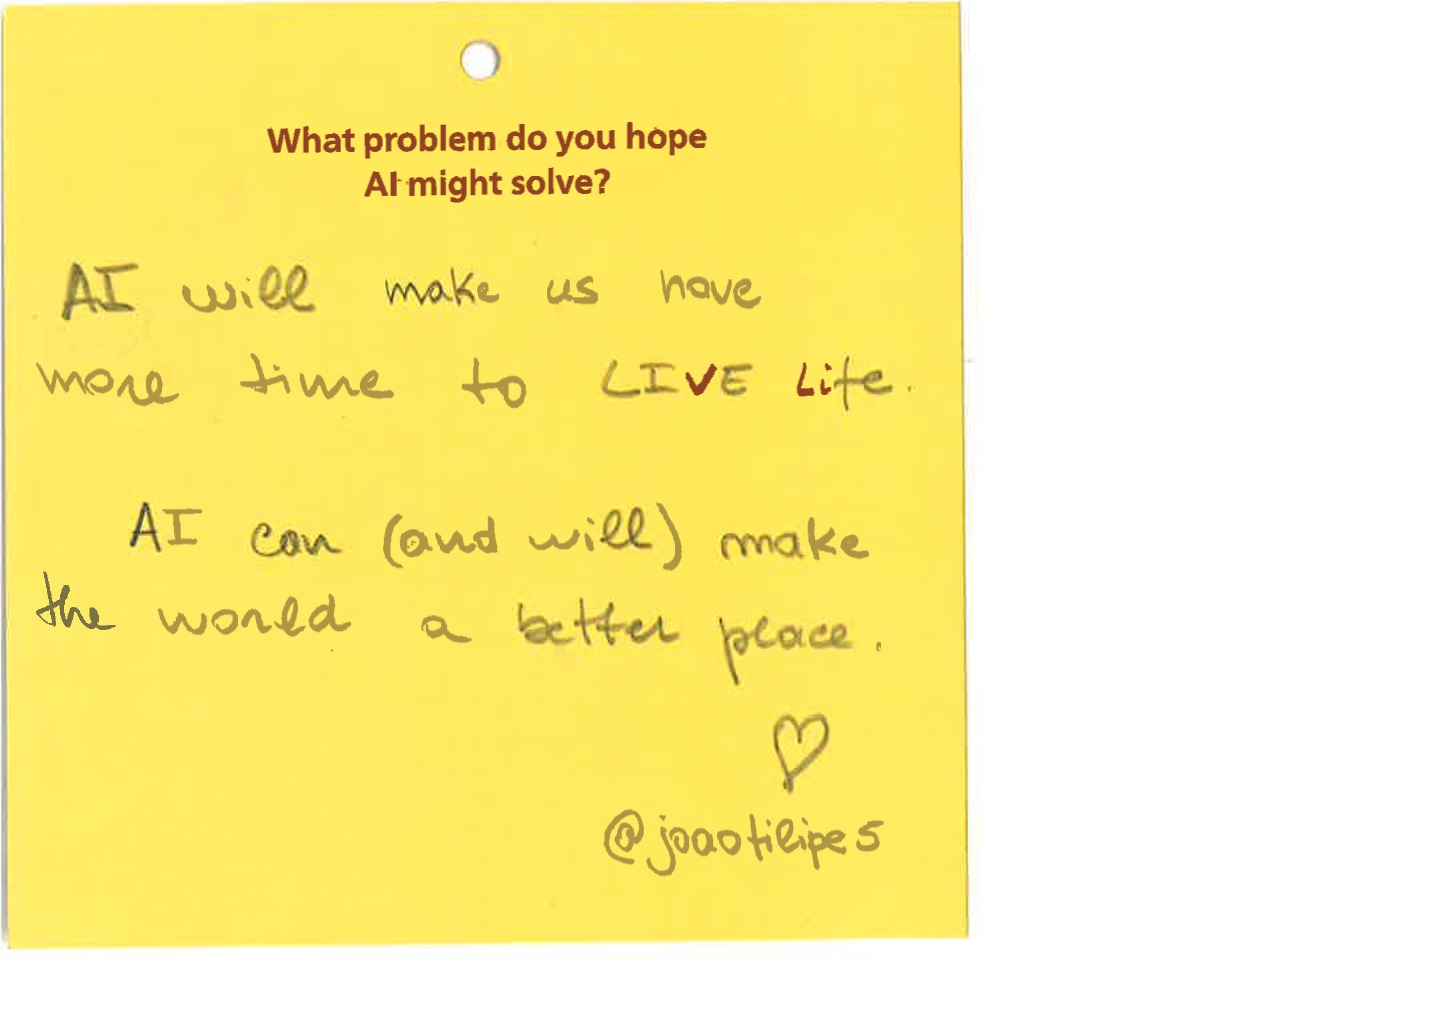 What problem do you hope
AI might solve?
AI will make us have
more time to LIVE Life.
AI can (and will) make
the world a better place.
@joaofilipe5